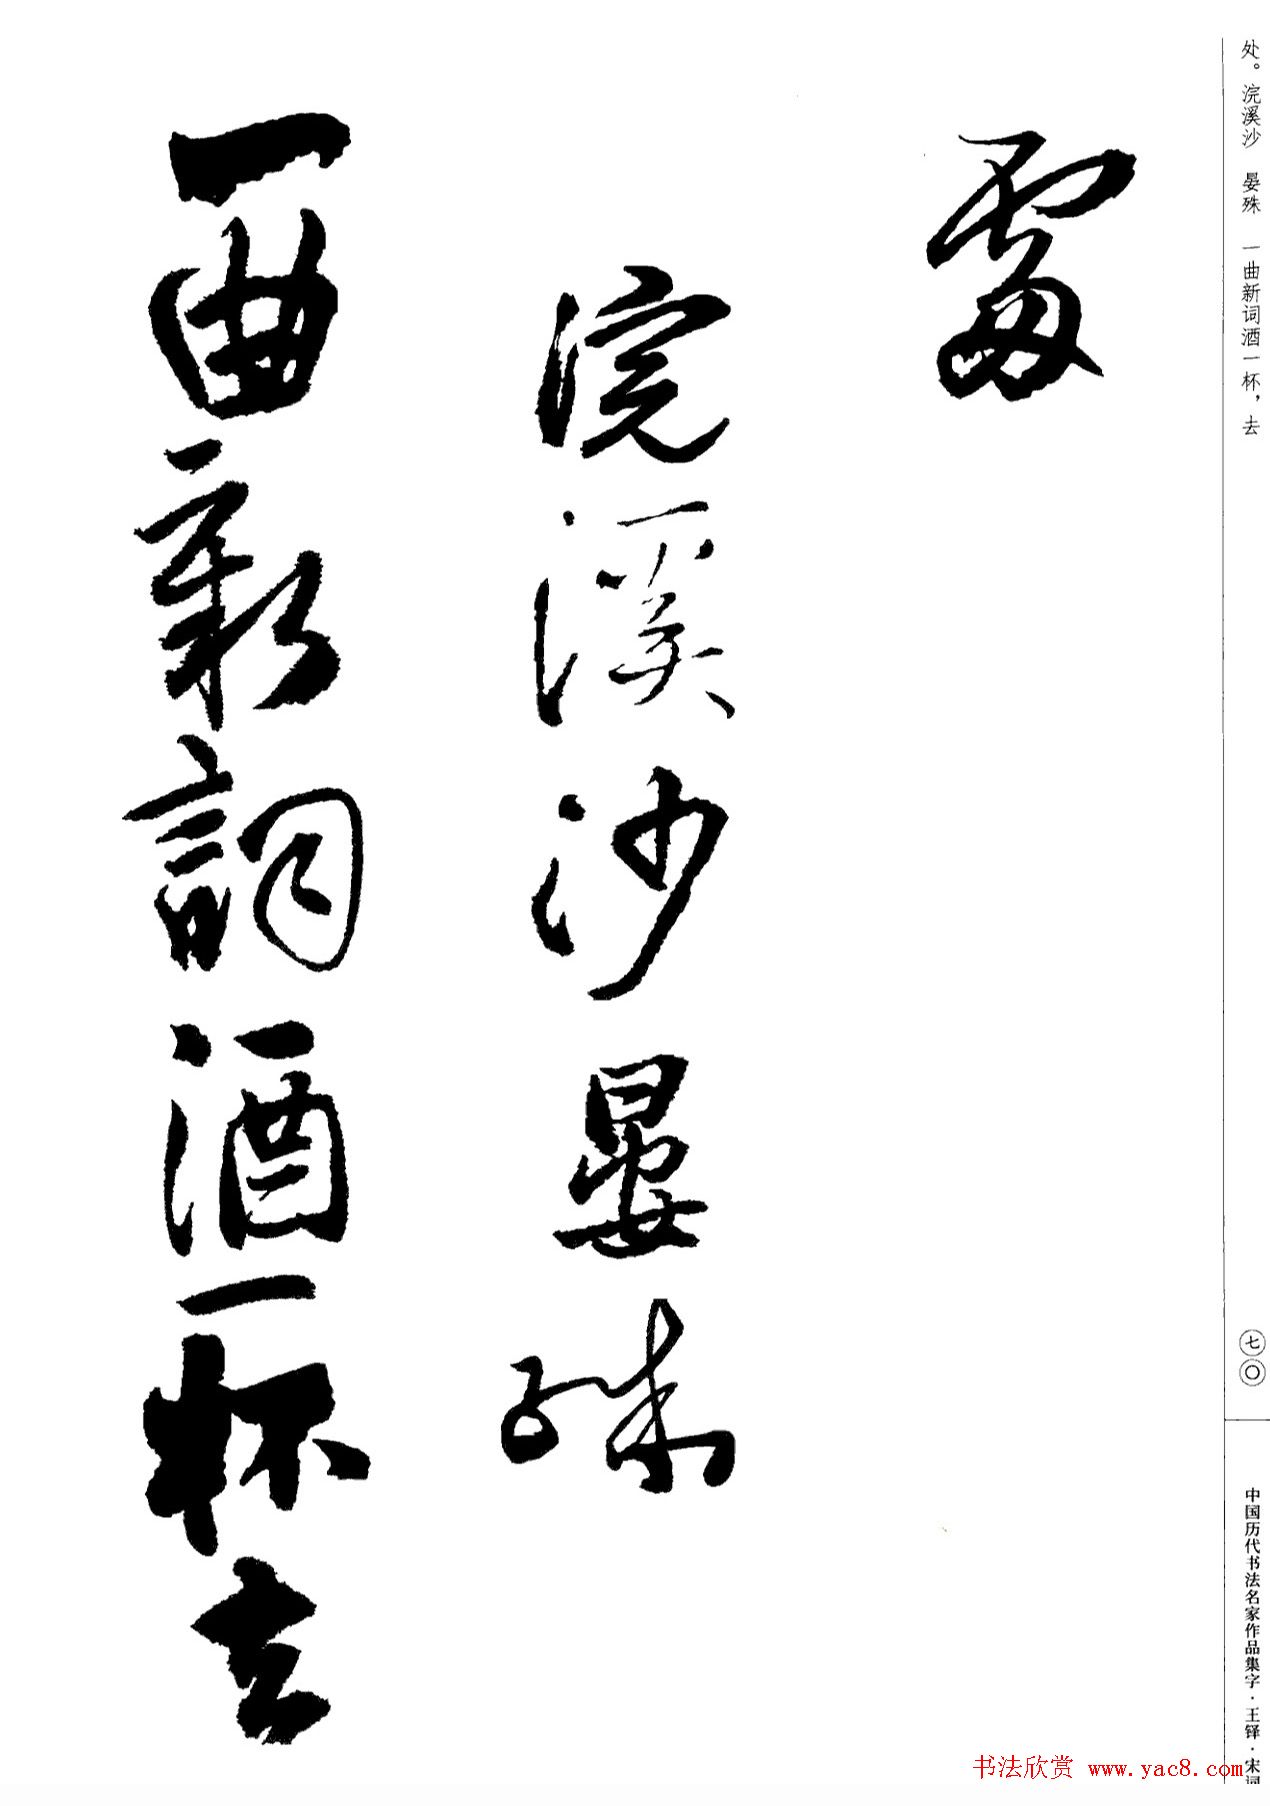 处。浣溪沙 晏殊 一曲新词酒一杯，去
七〇
中国历代书法名家作品集字·王铎·宋词
處
浣溪沙晏殊
一曲新詞酒一杯去
书法欣赏 www.yac8.com